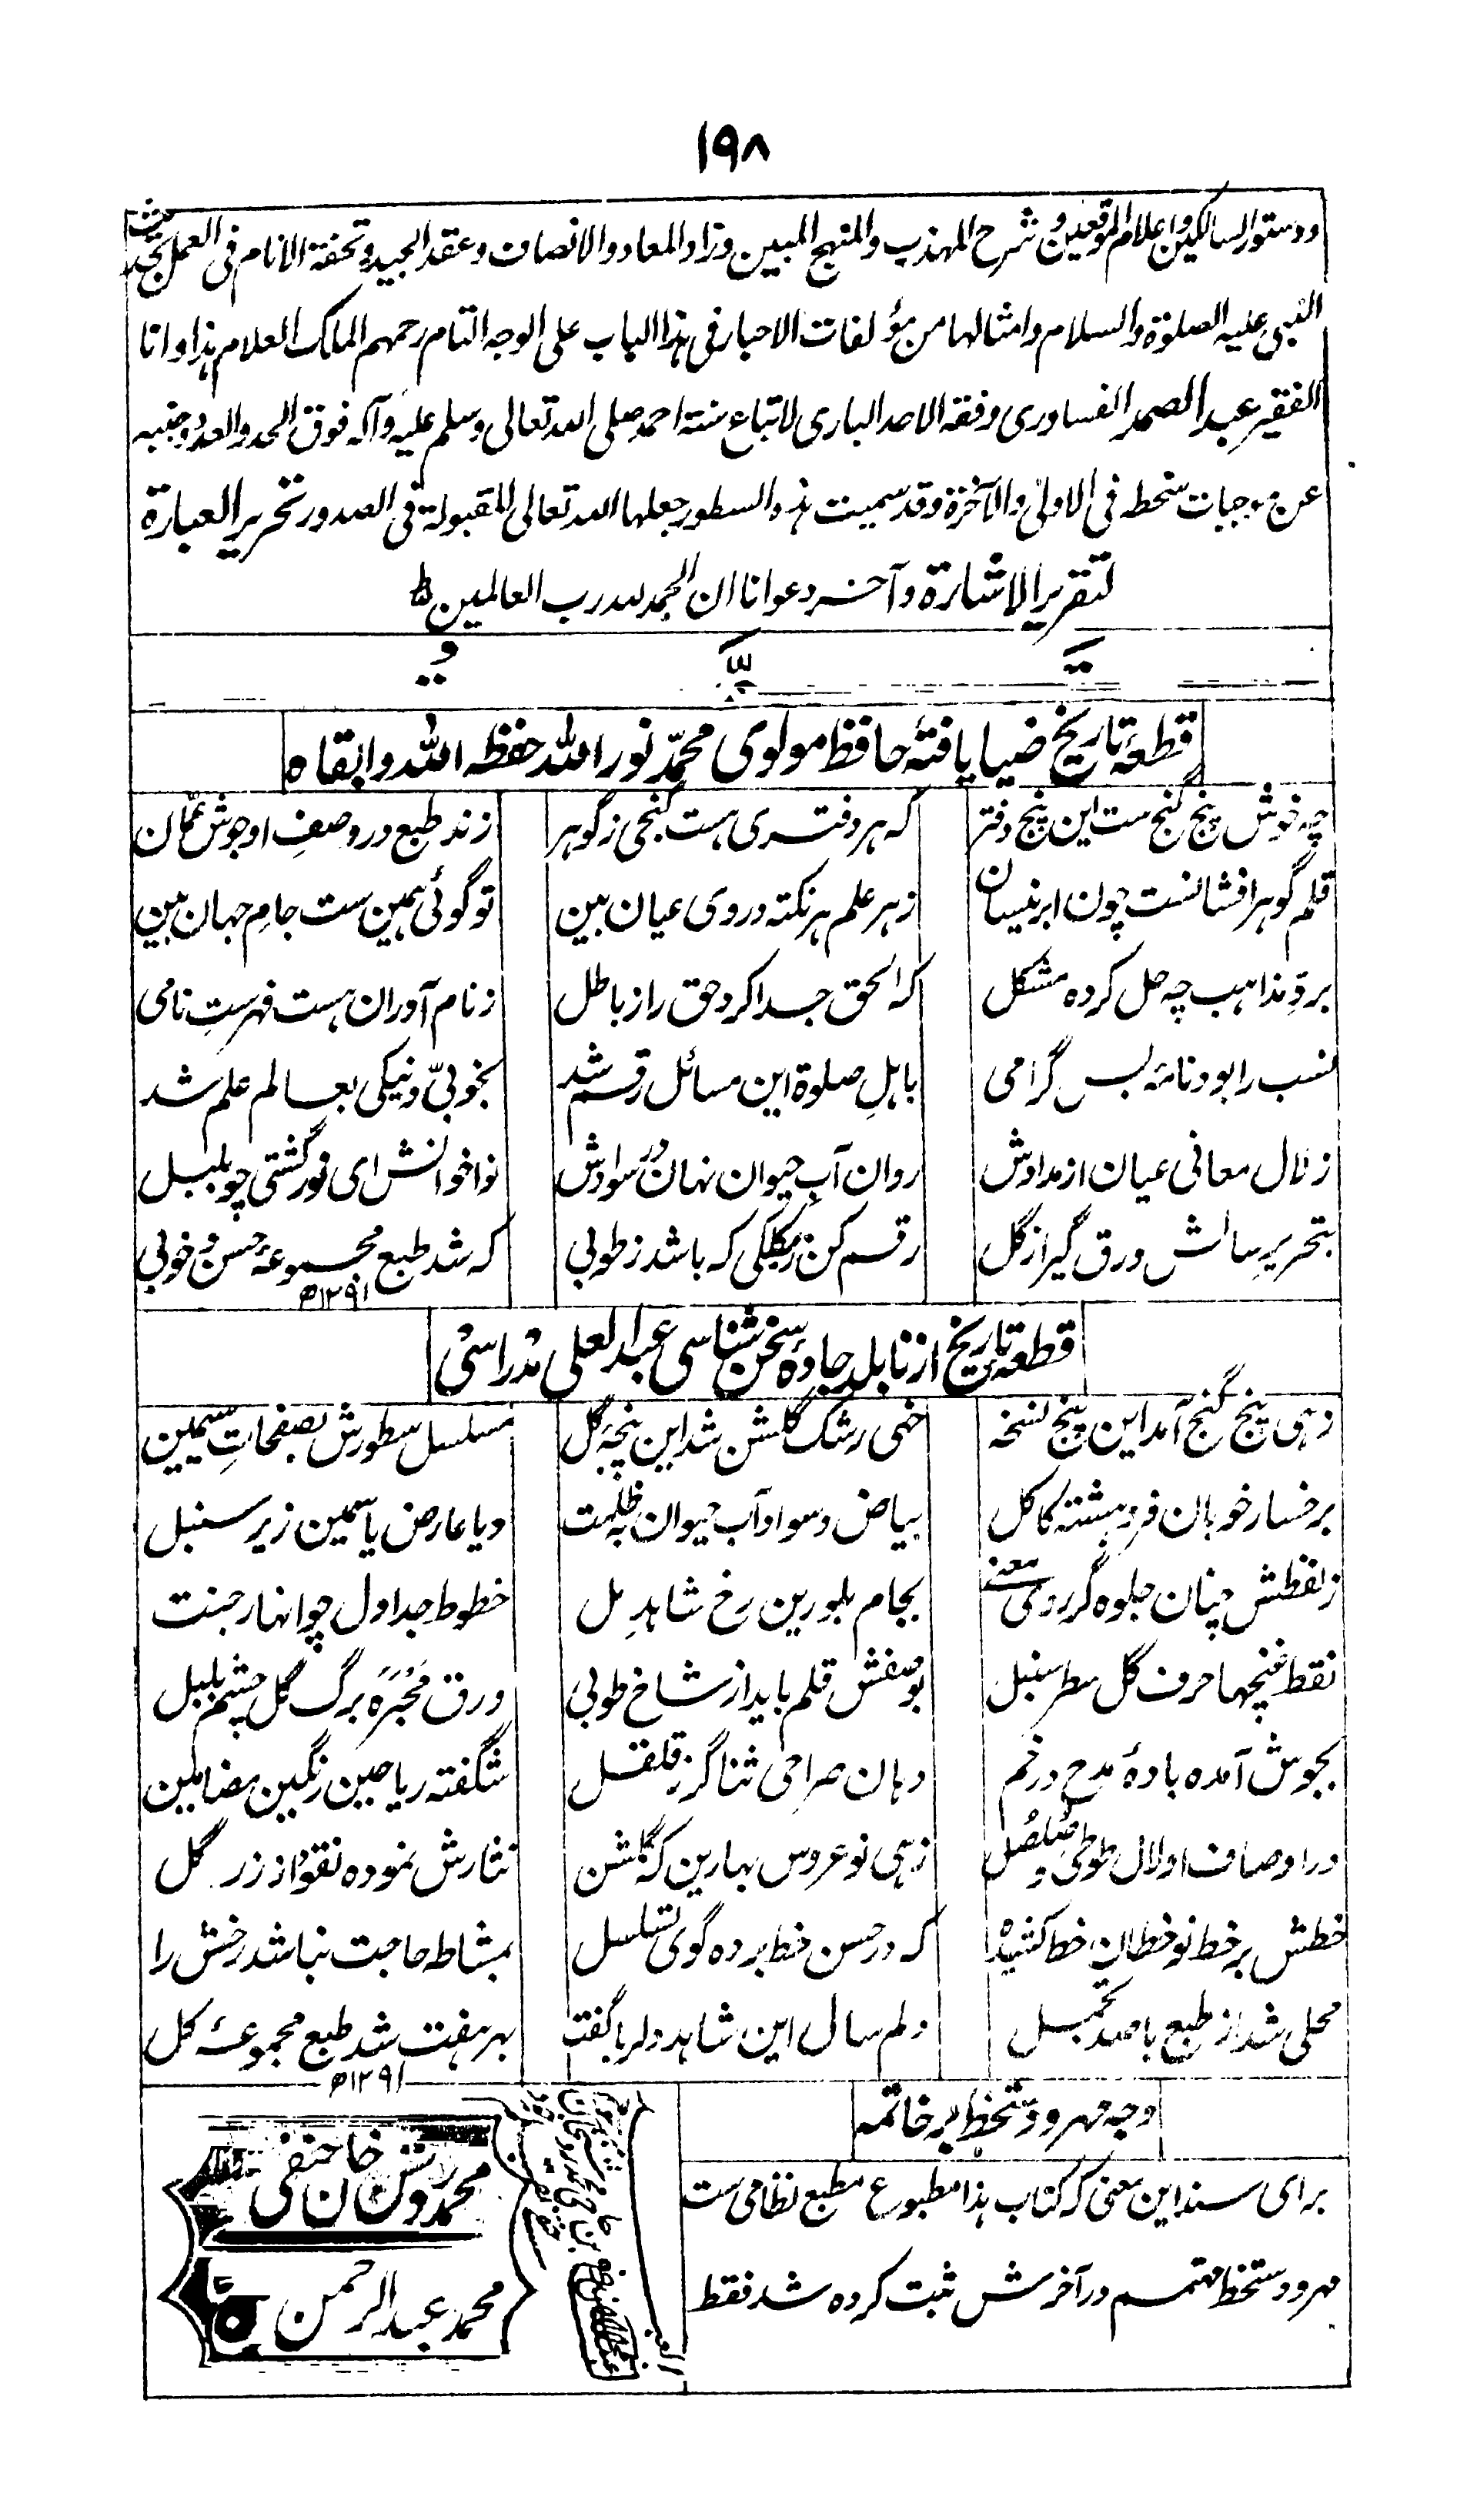 ۱۹۸
ودستور السالکین واعلام الموقعین وشرح المهذب والمنهج المبین وزاد المعاد والانصاف وعقد الجید وتحفة الانام فی العمل بحدیث
النبی علیه الصلوة والسلام وامثالها من مؤلفات الاحبار فی هذا الباب علی الوجه التام رحمهم الملک العلام هذا وانا
الفقیر عبد الصمد الفساوری وفقه الاحد الباری لاتباع سنة احمد صلی الله تعالی وسلم علیه وآله فوق الحد والعد وجنبه
عن موجبات سخطه فی الاولی والآخرة وقد سمیت هذه السطور جعلها الله تعالی المقبولة فی الصدور تحریر العبارة
لتقریر الاشارة وآخر دعوانا ان الحمد لله رب العالمین ط
قطعۂ تاریخ ضیا یافتۂ حافظ مولوی محمّد نور اللّٰه حفظه اللّٰه وابقاه
چه خوش پنج گنج ست این پنج دفتر که هر دفتری هست گنجی ز گوهر زند طبع در وصفِ او جوش عمّان
قلم گوهر افشانست چون ابر نیسان ز هر علم هر نکته در وی عیان بین تو گوئی همین ست جامِ جهان بین
بردِّ مذاهب چه حل کرده مشکل که الحق جدا کرد حق را ز باطل ز نام آوران هست فهرستِ نامی
نسب را بود نامۂ بس گرامی باهلِ صلوة این مسائل رقم شد بخوبیّ و نیکی بعالم علم شد
زلال معانی عیان از مدادش روان آبِ حیوان نهان در سوادش نواخوانش ای نور گشتی چو بلبل
بتحریرِ سالش ورق گیر از گل رقم کن ز کلکی که باشد ز طوبی که شد طبع مجموعۂ حسن و خوبی
۱۲۹۱ھ
قطعۂ تاریخ از نابلدِ جادۂ سخن شناسی عبد العلی مدراسی
زهی پنج گنج آمد این پنج نسخه خهی رشک گلشن شد این پنجۂ گل مسلسل سطورش بصفحاتِ سیمین
برخسار خوبان فروهشته کاکل بیاض و سواد آب حیوان به ظلمت و یا عارض یاسمین زیر سنبل
ز لفظش چنان جلوه گر روی معنے بجام بلورین رخ شاهدِ مل خطوط جداول چو انهار جنت
نقط غنچها حرف گل سطر سنبل بوصفش قلم باید از شاخ طوبی ورق مَحْبَرَه برگ گل چشم بلبل
بجوش آمده بادۂ مدح در خم دهان صراحی ثناگر ز قلقل شگفته ریاحین رنگین مضامین
در اوصاف او لال طوطی و صُلصُل زهی نو عروس بهارین که گلشن نثارش نموده نقود از زر گل
خطش بر خط نوخطان خط کشیده که در حسن خط برده گوی تسلسل بمشاطه حاجت نباشد رخش را
محلی شد از طبع با صد تجمل دلم سال این شاهد دلربا گفت بهر هفت شد طبع مجموعۂ کل
۱۲۹۱ھ
وجه مهر و دستخط بر خاتمه
برای سند این معنی که کتاب هذا مطبوع مطبع نظامی ست
مهر و دستخط مهتمم در آخرش ثبت کرده شد فقط
محمد روشن خان حنفی
محمد عبد الرحمن